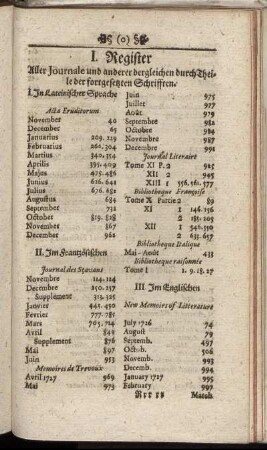 (0)
I. Register
Aller Journale und anderer dergleichen durch Thei-
le der fortgesetzten Schrifften.
I. In Lateinischer Sprache
Acta Eruditorum
November 40
December 65
Januarius 209. 229
Februarius 262. 304
Martius 340. 354
Aprilis 395. 409
Majus 571. 576
Junius 626. 648
Julius 676. 681
Augustus 684
September 722
October 819. 828
November 865
December 962
II. Im Frantzösischen
Journal des Sçavans
Novembre 124. 124
Decembre 150. 157
Supplement 313. 320
Janvier 445. 450
Fevrier 777. 781
Mars 705. 714
Avril 845
Supplement 865
Mai 897
Juin 965
Memoires de Trevoux
Avril 1727 969
Mai 973
Juin 975
Juillet 977
Août 979
Septembre 982
Octobre 984
Novembre 987
Decembre 991
Journal Literaire
Tome XI P. 2 395
XII 2 945
XIII 1 556. 561. 577
Bibliotheque Françoise
Tome X Partie 2 89
XI 1 146. 156
2 183. 205
XII 1 546. 550
2 631. 645
Bibliotheque Italique
Mai - Août 431
Bibliotheque raisonnée
Tome I 1. 9. 18. 27
III Im Englischen
New Memoirs of Litterature
July 1726 74
August 79
Septemb. 497
Octob. 503
Novemb. 991
Decemb. 994
January 1727 995
February 997
Rrr 25 March